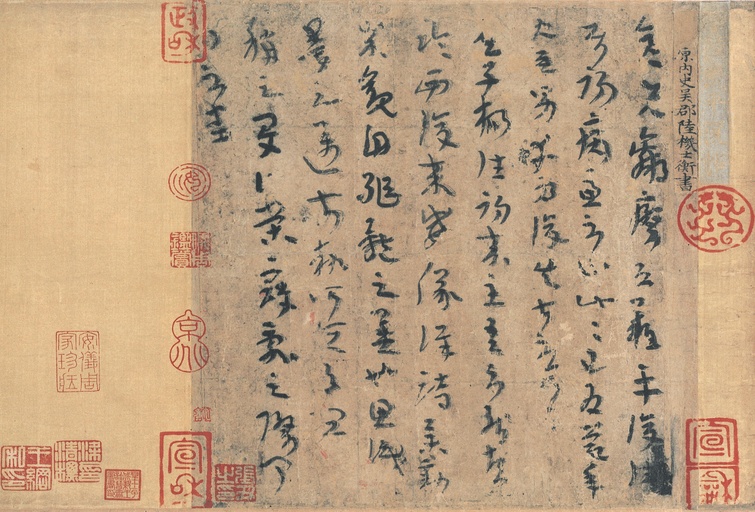 原内史吳郡陸機士衡書
彦先羸瘵恐難平復往屬
初病慮不止此此已為慶承
使唯男幸為復失前憂耳
吳子楊往初來主吾不能盡
臨西復來威儀詳跱舉動
成觀自軀體之美也思識
量之邁前執所恒有宜
稱之夏伯榮寇亂之際聞
問不悉
宣和
政和
安儀周家珍藏